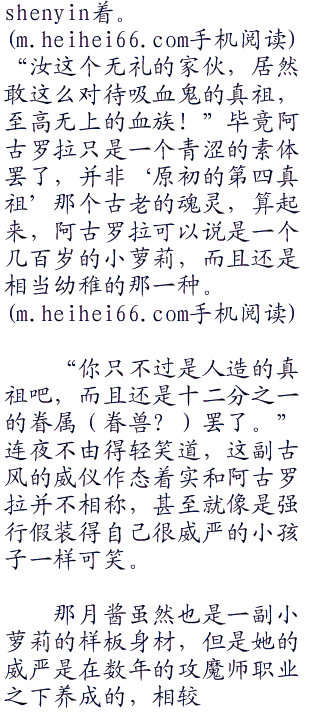 shenyin着。
(m.heihei66.com手机阅读)
“汝这个无礼的家伙，居然
敢这么对待吸血鬼的真祖，
至高无上的血族！”毕竟阿
古罗拉只是一个青涩的素体
罢了，并非‘原初的第四真
祖’那个古老的魂灵，算起
来，阿古罗拉可以说是一个
几百岁的小萝莉，而且还是
相当幼稚的那一种。
(m.heihei66.com手机阅读)
“你只不过是人造的真
祖吧，而且还是十二分之一
的眷属（眷兽？）罢了。”
连夜不由得轻笑道，这副古
风的威仪作态着实和阿古罗
拉并不相称，甚至就像是强
行假装得自己很威严的小孩
子一样可笑。
那月酱虽然也是一副小
萝莉的样板身材，但是她的
威严是在数年的攻魔师职业
之下养成的，相较